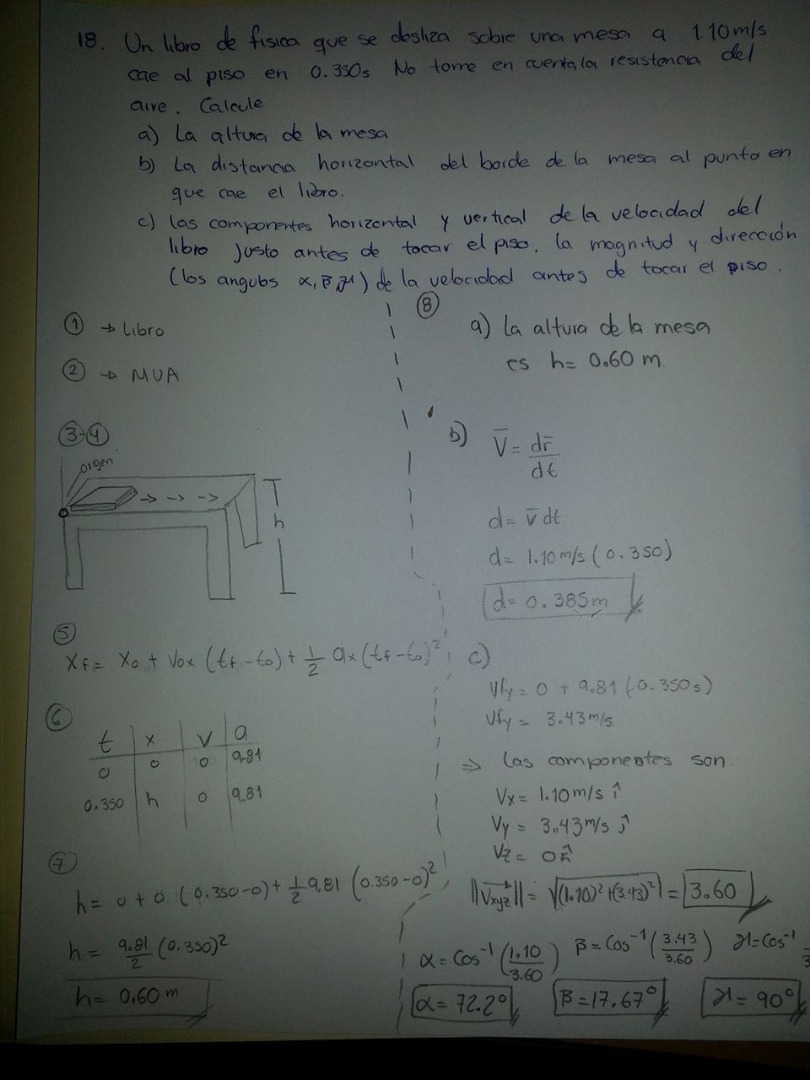 18. Un libro de fisica que se desliza sobre una mesa a 1.10 m/s
cae al piso en 0.350s No tome en cuenta la resistencia del
aire. Calcule
a) La altura de la mesa
b) La distancia horizontal del borde de la mesa al punto en
que cae el libro.
c) las componentes horizontal y vertical de la velocidad del
libro justo antes de tocar el piso. la magnitud y dirección
(los angulos α, β, γ) de la velocidad antes de tocar el piso.
① → Libro
② → MUA
③-④
origen
h
⑤
Xf = Xo + Vox (tf - to) + 1/2 ax (tf - to)²
⑥
t | x | v | a
0 | 0 | 0 | 9.81
0.350 | h | 0 | 9.81
⑦
h = 0 + 0 (0.350-0) + 1/2 9.81 (0.350-0)²
h = 9.81/2 (0.350)²
h = 0.60 m
⑧
a) La altura de la mesa
es h= 0.60 m
b) V̄ = dr̄/dt
d = v̄ dt
d = 1.10 m/s (0.350)
d = 0.385m
c)
Vfy = 0 + 9.81 (0.350s)
Vfy = 3.43 m/s
⇒ las componentes son
Vx = 1.10 m/s î
Vy = 3.43 m/s ĵ
Vz = 0 k̂
||Vxyz|| = √((1.10)² + (3.43)²) = 3.60
α = Cos⁻¹ (1.10/3.60) β = Cos⁻¹ (3.43/3.60) γ = Cos⁻¹
α = 72.2° β = 17.67° γ = 90°